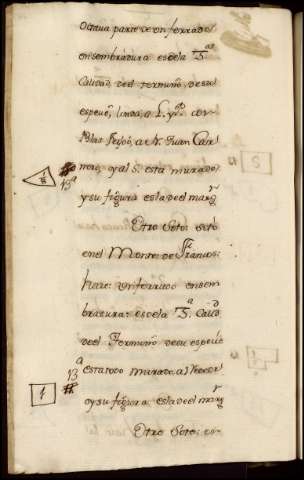 Octava parte de un ferrado
ensembradura es de la 3ª
Calidad del termino de su
especie, linda, a L. y P. con
Blas Feijoo, a N. Juan Can
neiro, y al S. esta murado
13ª
y su figura es la del marg.n
Otro Soto: sito
en el Monte: de Francis
hace: un ferrado ensem
bradura: es de la 3ª Calid
del Termino de su especie
13ª
esta todo murado al rrededor
1
y su figura: es la del marg
Otro Soto: